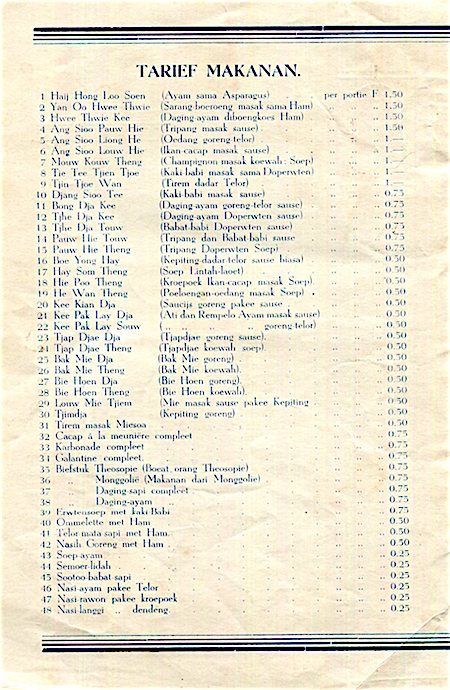 TARIEF MAKANAN.
1 Haij Hong Loo Soen (Ayam sama Asparagus) per portie F 1.50
2 Yan Oo Hwee Thwie (Sarang-boeroeng masak sama Ham) .. .. 1.50
3 Hwee Thwie Kee (Daging-ayam diboengkoes Ham) .. .. 1.50
4 Ang Sioo Pauw Hie (Tripang masak sause) .. .. 1.50
5 Ang Sioo Liong He (Oedang goreng-telor) .. .. 1.—
6 Ang Sioo Louw Hie (Ikan-cacap masak sause) .. .. 1.—
7 Mouw Kouw Theng (Champignon masak koewah: Soep) .. .. 1.—
8 Tie Tee Tjien Tjoe (Kaki-babi masak sama Doperwten) .. .. 1.—
9 Tjin Tjoe Wan (Tirem dadar Telor) .. .. 1.—
10 Djang Sioo Tee (Kaki-babi masak sause) .. .. 0.75
11 Bong Dja Kee (Daging-ayam goreng-telor sause) .. .. 0.75
12 Tjhe Dja Kee (Daging-ayam Doperwten sause) .. .. 0.75
13 Tjhe Dja Touw (Babat-babi Doperwten sause) .. .. 0.75
14 Pauw Hie Touw (Tripang dan Babat-babi sause .. .. 0.75
15 Pauw Hie Theng (Tripang Doperwten Soep) .. .. 0.75
16 Boe Yong Hay (Kepiting-dadar-telor sause biasa) .. .. 0.50
17 Hay Som Theng (Soep Lintah-laoet) .. .. 0.50
18 Hie Poo Theng (Kroepoek Ikan-cacap masak Soep) .. .. 0.50
19 He Wan Theng (Poeloengan-oedang masak Soep) .. .. 0.50
20 Kee Kian Dja (Saucijs goreng pakee sause .. .. 0.50
21 Kee Pak Lay Dja (Ati dan Rempelo Ayam masak sause) .. .. 0.50
22 Kee Pak Lay Souw ( .. .. .. .. goreng-telor) .. .. 0.50
23 Tjap Djae Dja (Tjapdjae goreng sause). .. .. 0.50
24 Tjap Djae Theng (Tjapdjae koewah soep). .. .. 0.50
25 Bak Mie Dja (Bak Mie goreng) .. .. 0.50
26 Bak Mie Theng (Bak Mie koewah). .. .. 0.50
27 Bie Hoen Dja (Bie Hoen goreng). .. .. 0.50
28 Bie Hoen Theng (Bie Hoen koewah). .. .. 0.50
29 Louw Mie Tjiem (Mie masak sause pakee Kepiting .. .. 0.50
30 Tjimdja (Kepiting goreng) .. .. 0.50
31 Tirem masak Miesoa .. .. 0.50
32 Cacap á la meunière compleet .. .. 0.75
33 Karbonade compleet .. .. 0.75
34 Galantine compleet. .. .. 0.75
35 Biefstuk Theosopie (Boeat, orang Theosopie) .. .. 0.75
36 .. Monggolië (Makanan dari Monggolie) .. .. 0.75
37 Daging-sapi compleet .. .. 0.75
38 Daging-ayam .. .. 0.75
39 Erwtensoep met kaki-Babi .. .. 0.75
40 Ommelette met Ham .. .. 0.50
41 Telor-mata-sapi met Ham. .. .. 0.50
42 Nasih Goreng met Ham .. .. 0.50
43 Soep-ayam .. .. 0.25
44 Semoer-lidah .. .. 0.25
45 Sootoo-babat-sapi .. .. 0.25
46 Nasi-ayam pakee Telor .. .. 0.25
47 Nasi-rawon pakee kroepoek .. .. 0.25
48 Nasi-langgi .. dendeng. .. .. 0.25